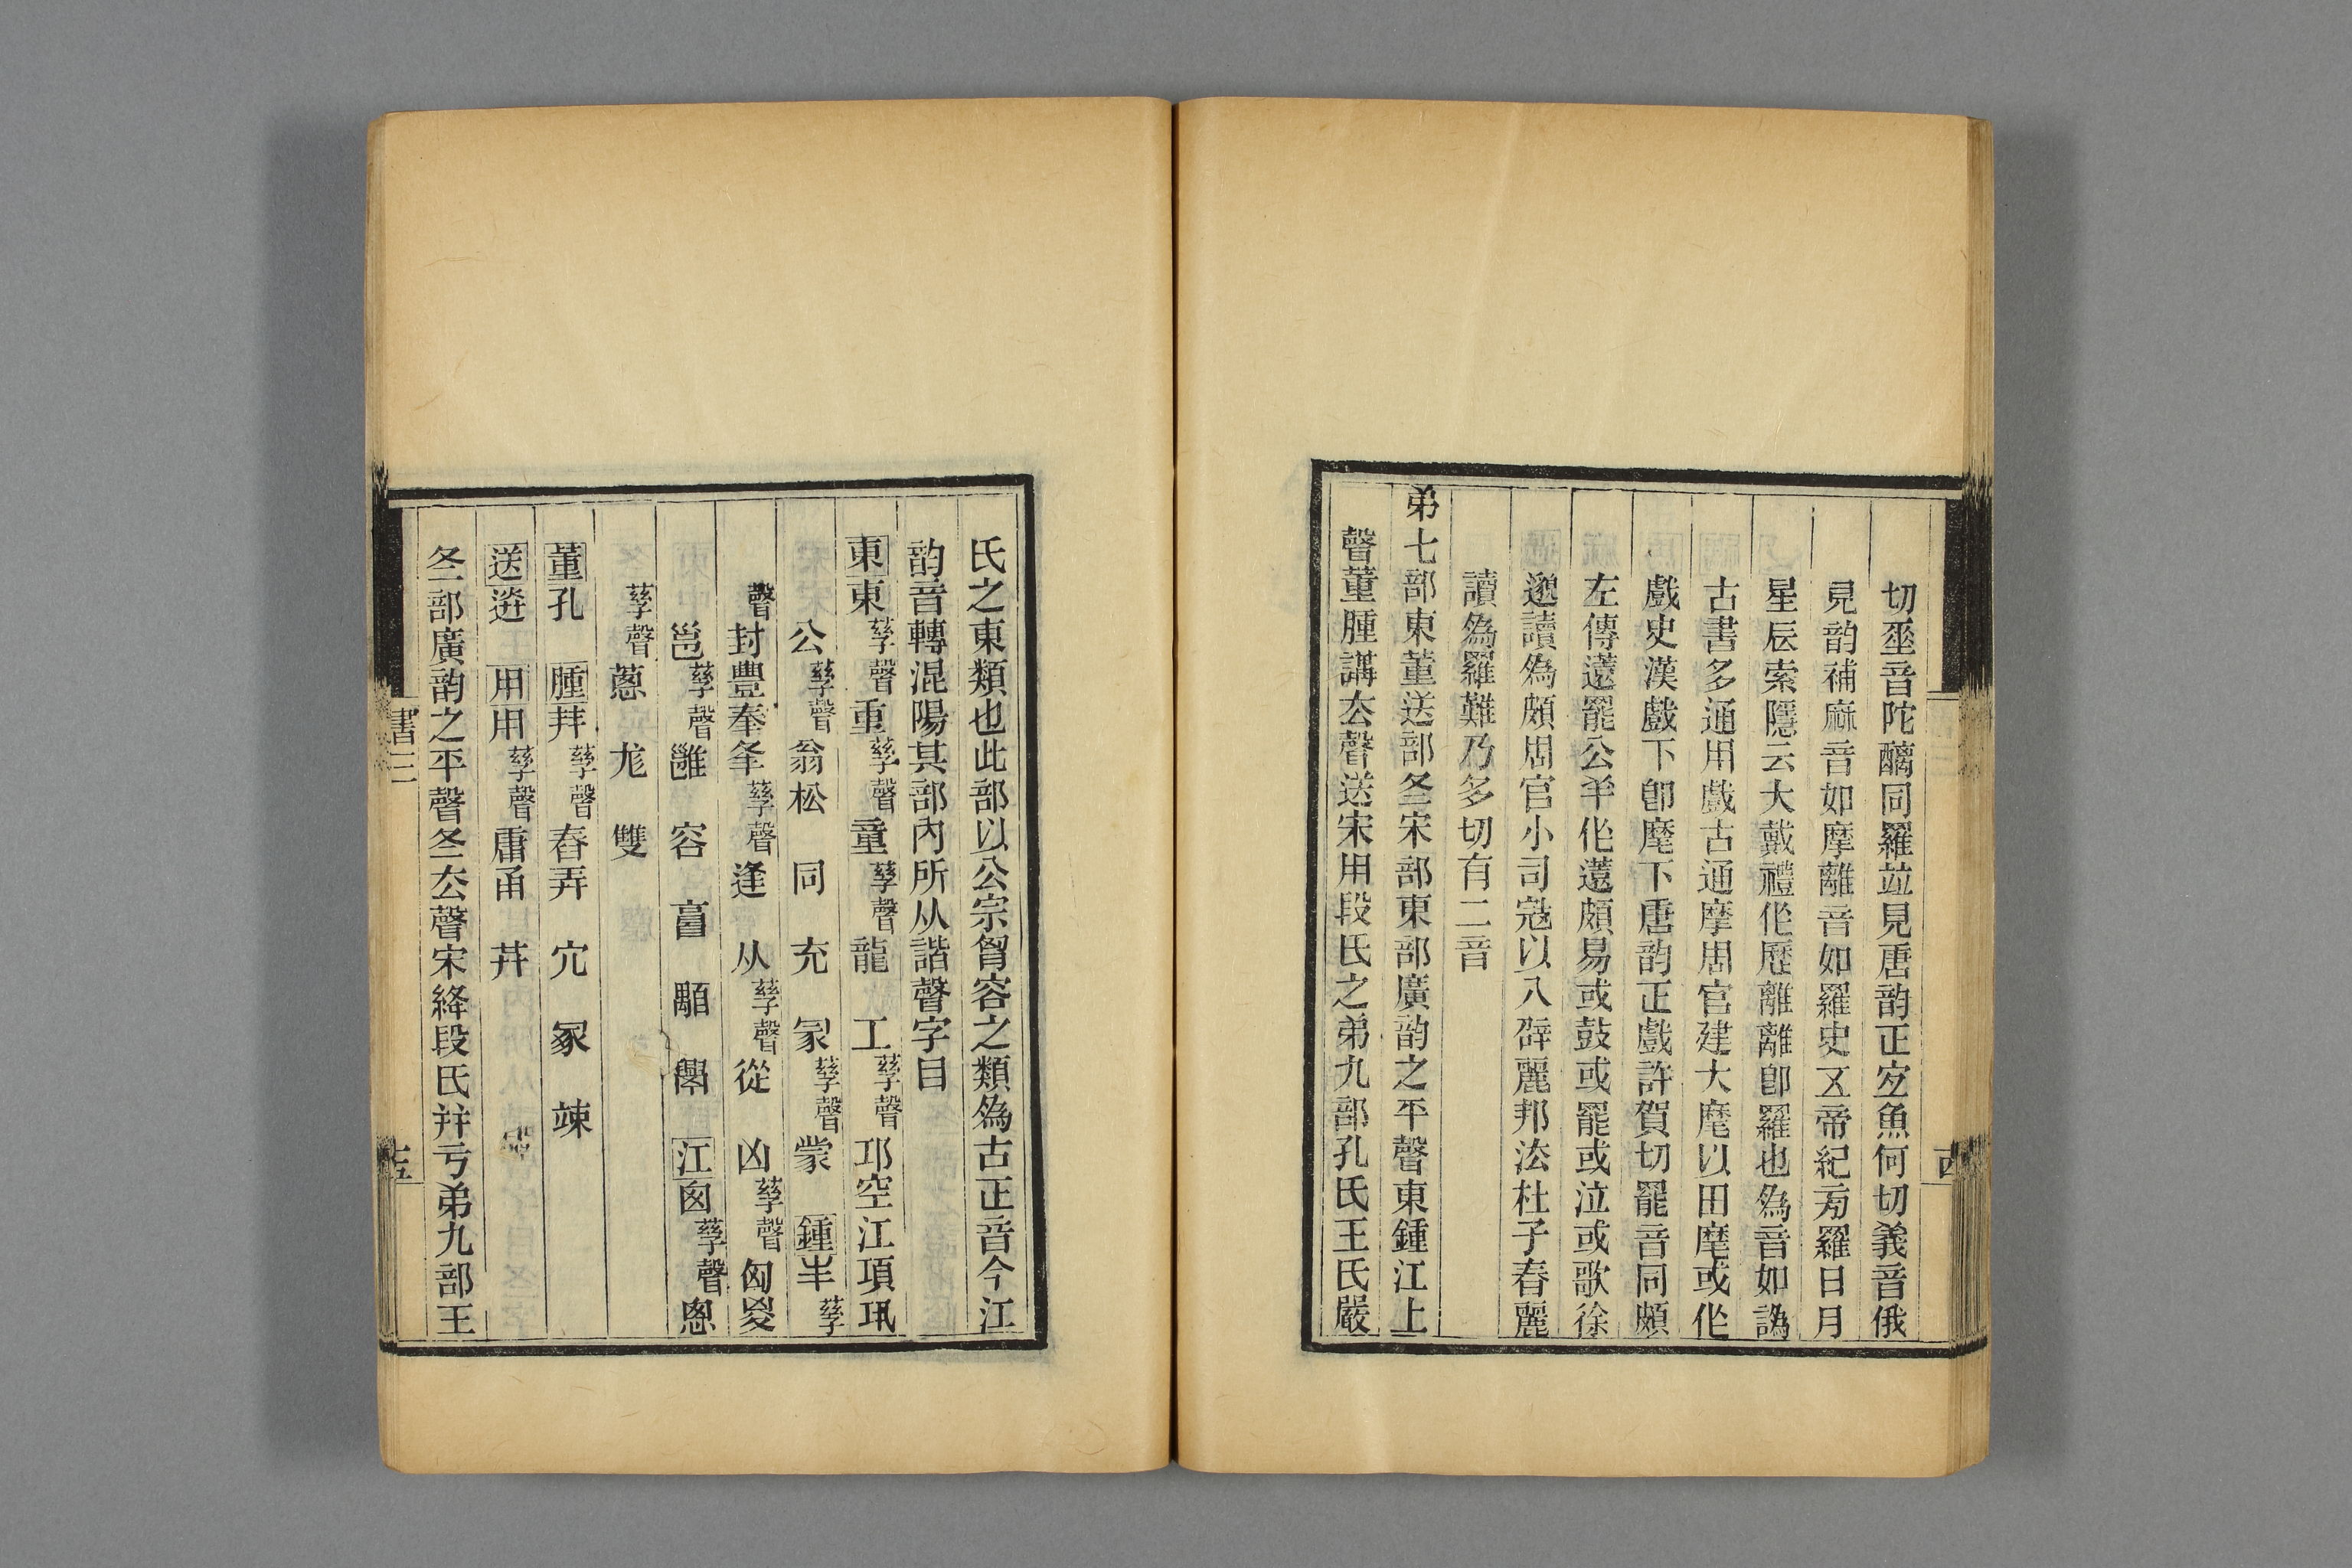 切𡋲音陀醨同羅竝見唐韵正宐魚何切義音俄
見韵補麻音如摩離音如羅史𠄡帝紀㫄羅日月
星辰索隱云大戴禮作歷離離卽羅也為音如譌
古書多通用戲古通摩周官建大麾以田麾或作
戲史漢戲下卽麾下唐韵正戲許賀切罷音同頗
左傳薳罷公羊作薳頗易或鼓或罷或泣或歌徐
邈讀為頗周官小司寇以八辟麗邦法杜子春麗
讀為羅難乃多切有二音
弟七部東董送部冬宋部東部廣韵之平聲東鍾江上
聲董腫講去聲送宋用段氏之弟九部孔氏王氏嚴
氏之東類也此部以公宗𦚾容之類為古正音今江
韵音轉混陽其部內所从諧聲字目
東東孳聲重孳聲童孳聲龍 工孳聲邛空江項巩
公孳聲翁松 同 充 冡孳聲蒙 鍾丰孳
聲封豐奉夆孳聲逢 从孳聲從 凶孳聲匈㚇
邕孳聲雝 容 𠅩 顒 𦥷 江囪孳聲悤
孳聲蔥 尨 雙
董孔 腫𢪙孳聲舂弄 宂 冢 竦
送𨔮 用用孳聲庸甬 共
冬部廣韵之平聲冬去聲宋絳段氏幷亏弟九部王
書三
十五